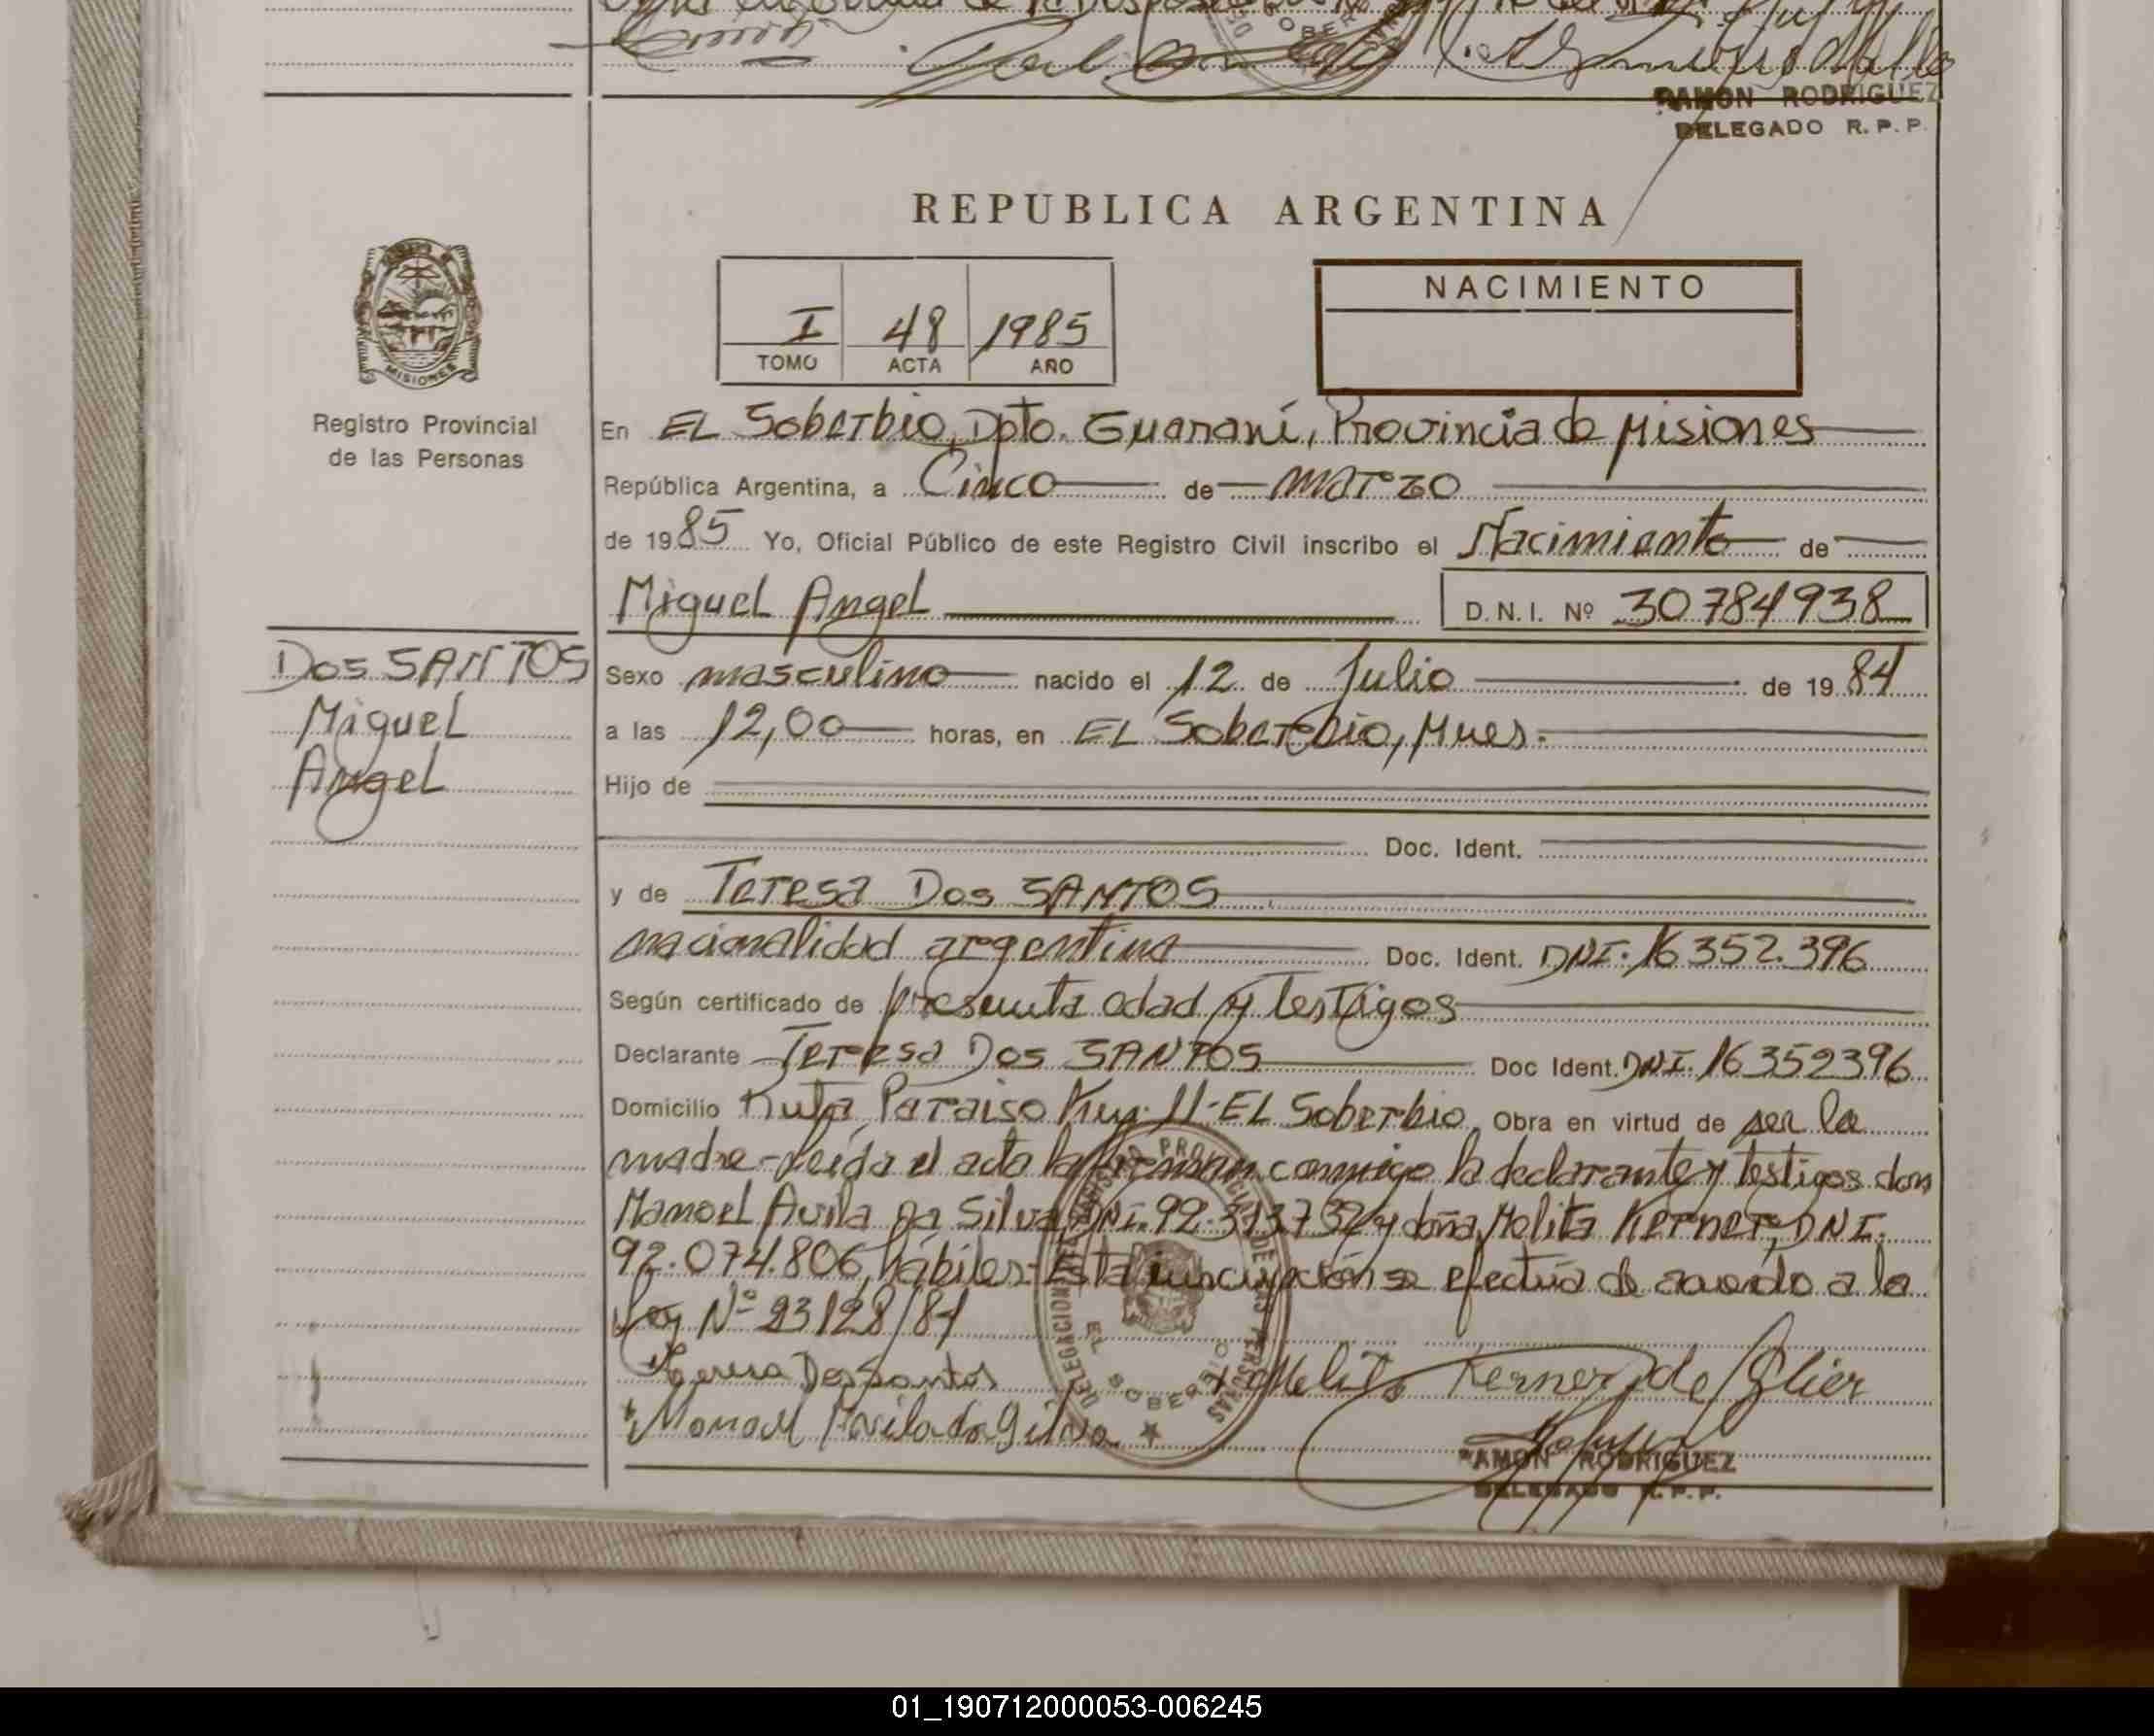 RAMON RODRIGUEZ
DELEGADO R. P. P.
REPUBLICA ARGENTINA
I 48 1985
TOMO ACTA AÑO
NACIMIENTO
MISIONES
Registro Provincial
de las Personas
En EL Soberbio, Dpto. Guaraní, Provincia de Misiones
República Argentina, a Cinco de marzo
de 1985 Yo, Oficial Público de este Registro Civil inscribo el Nacimiento de
Miguel Angel D.N.I. Nº 30784938
DOS SANTOS
Miguel
Angel
Sexo masculino nacido el 12 de Julio de 1984
a las 12,00 horas, en EL Soberbio, Mnes.
Hijo de
Doc. Ident.
y de Teresa Dos SANTOS
nacionalidad argentina Doc. Ident. DNI. 16352.396
Según certificado de presunta edad y testigos
Declarante Teresa Dos SANTOS Doc Ident. DNI. 16352396
Domicilio Ruta Paraiso Km. 11-EL Soberbio Obra en virtud de ser la
madre-leída el acta la firman conmigo la declarante y testigos don
Manoel Avila da Silva, DNI. 92.313732 y doña Melita Kerner, DNI.
92.074.806, hábiles-Esta inscripción se efectúa de acuerdo a la
Ley Nº 23128/84
Teresa Dos Santos
Melita Kerner de Glier
Manoel Avila da Silva
EL SOBERBIO
RAMON RODRIGUEZ
DELEGADO R. P. P.
01_190712000053-006245